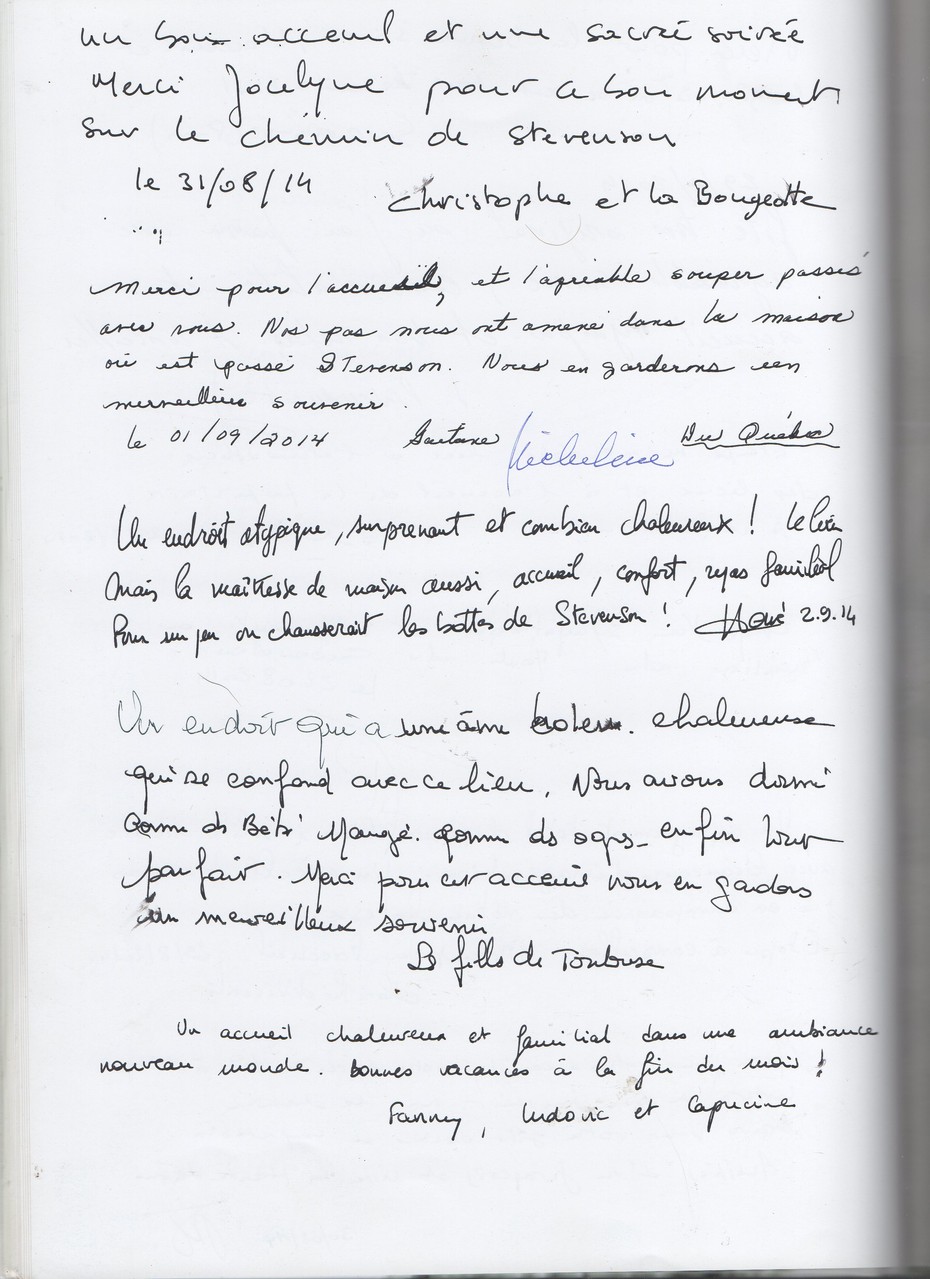 un bon acceuil et une sacré soirée
Merci Jocelyne pour ce bon moment
sur le chémin de Stevenson
le 31/08/14
Christophe et la Bougeotte
Merci pour l'accueil, et l'agréable souper passés
avec vous. Nos pas nous ont amené dans la maison
où est passé Stevenson. Nous en garderons un
merveilleux souvenir.
le 01/09/2014 Gaetane Micheline Du Québec
Un endroit atypique, surprenant et combien chaleureux ! Le lieu
mais la maîtresse de maison aussi, accueil, confort, repas familial
Pour un peu on chausserait les bottes de Stevenson ! 2.9.14
Un endroit qui a une âme chaleureuse
qui se confond avec ce lieu. Nous avons dormi
comme ds Bébé Mangé comme ds ogres_ enfin tout
parfait. Merci pour cet acceuil nous en gardons
un merveilleux souvenir
Ls filles de Toulouse
Un accueil chaleureux et familial dans une ambiance
nouveau monde. Bonnes vacances à la fin du mois !
Fanny, Ludovic et Capucine